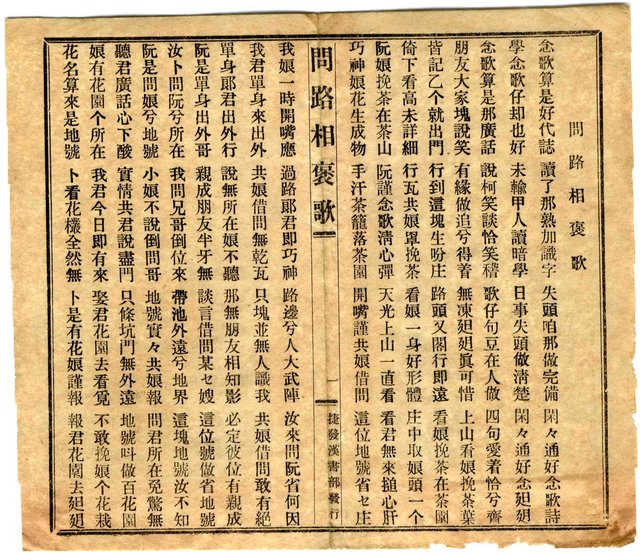 問路相褒歌
念歌算是好代誌 讀了那熟加識字 失頭咱那做完備 閑々通好念歌詩
學念歌仔却也好 未輸甲人讀暗學 日事失頭做清楚 閑々通好念𨑨迌
念歌算是那廣話 說柯笑談恰笑 歌仔句豆在人做 四句愛着恰兮齊
朋友大家塊說笑 有緣做追兮得着 無凍𨑨迌眞可惜 上山看娘挽茶葉
皆記乙个就出門 行到這塊生吩庄 路頭又閣行即遠 看娘挽茶在茶園
倚下看高未詳細 行瓦共娘罩挽茶 看娘一身好形體 庄中取娘頭一个
阮娘挽茶在茶山 阮謹念歌淸心彈 天光上山一直看 看君無來搥心肝
巧神娘花生成物 手汗茶籠落茶園 開嘴謹共娘借問 這位地號省セ庄
問路相褒歌 一 捷發漢書部發行
我娘一時開嘴應 過路郎君即巧神 路邊兮人大武陣 汝來問阮省何因
我君單身來出外 共娘借問無乾瓦 只塊並無人識我 共娘借問敢有絕
單身郎君出外行 說無所在娘不聽 那無朋友相知影 必定彼位有親成
阮是單身出外哥 親成朋友半牙無 談言借問某セ嫂 這位號做省地號
汝卜問阮兮所在 我問兄哥倒位來 帶池外遠兮地界 這塊地號汝不知
阮是問娘兮地號 小娘不說到問哥 地號實々共娘報 問君所在免驚無
聽君廣話心下酸 實情共君說盡門 只條坑門無外遠 地號叫做百花園
娘有花園个所在 我君今日即有來 娶君花園去看覓 不敢挽娘个花栽
花名算來是地號 卜看花欉全然無 卜是有花娘謹報 報君花園去𨑨迌